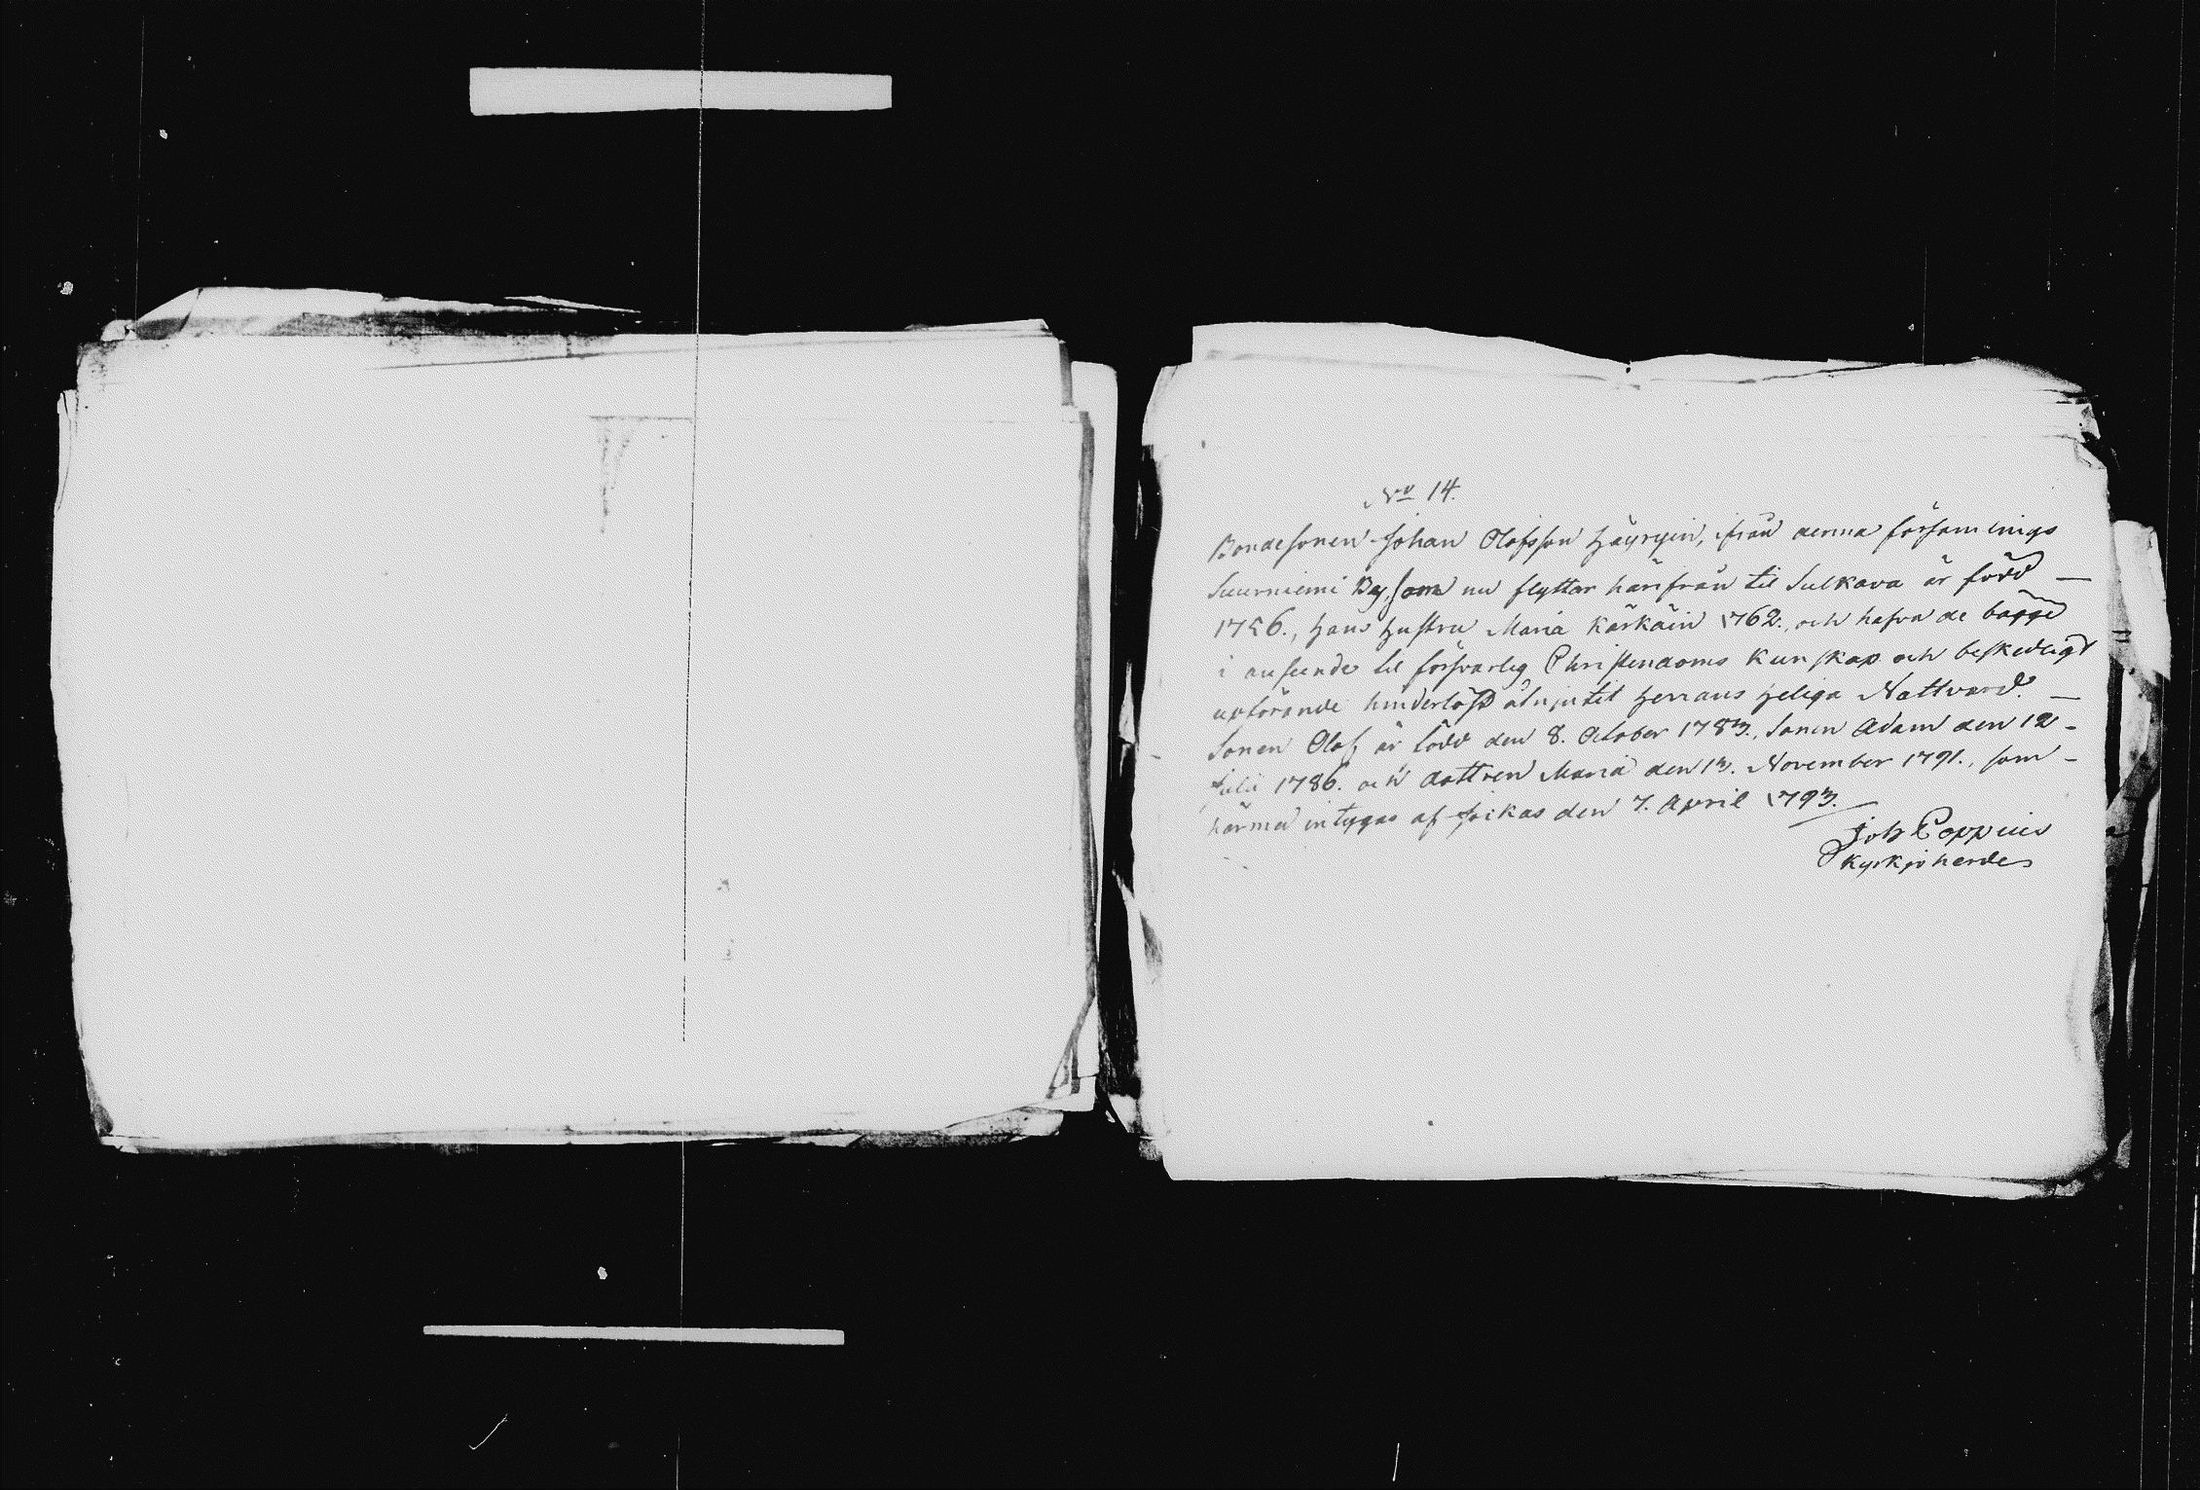 No 14.
Bondesonen Johan Olofsson Häyryin, ifrån denna församlings
Suurniemi By, som nu flyttar härifrån til Sulkava är född —
1756., Hans Hustru Maria Kärkäin 1762., och hafva de bägge
i anseende til försvarlig Christendoms Kunskap och beskedligt
upförande hinderlöst åtnjutit Herrans Heliga Nattvard. —
Sonen Olof är född den 8. October 1783., Sonen Adam den 12 -
Julii 1786. och dottren Maria den 13. November 1791., som -
härmed intygas af Joikas den 7. April 1793.
Joh Poppius
Kyrkjoherde